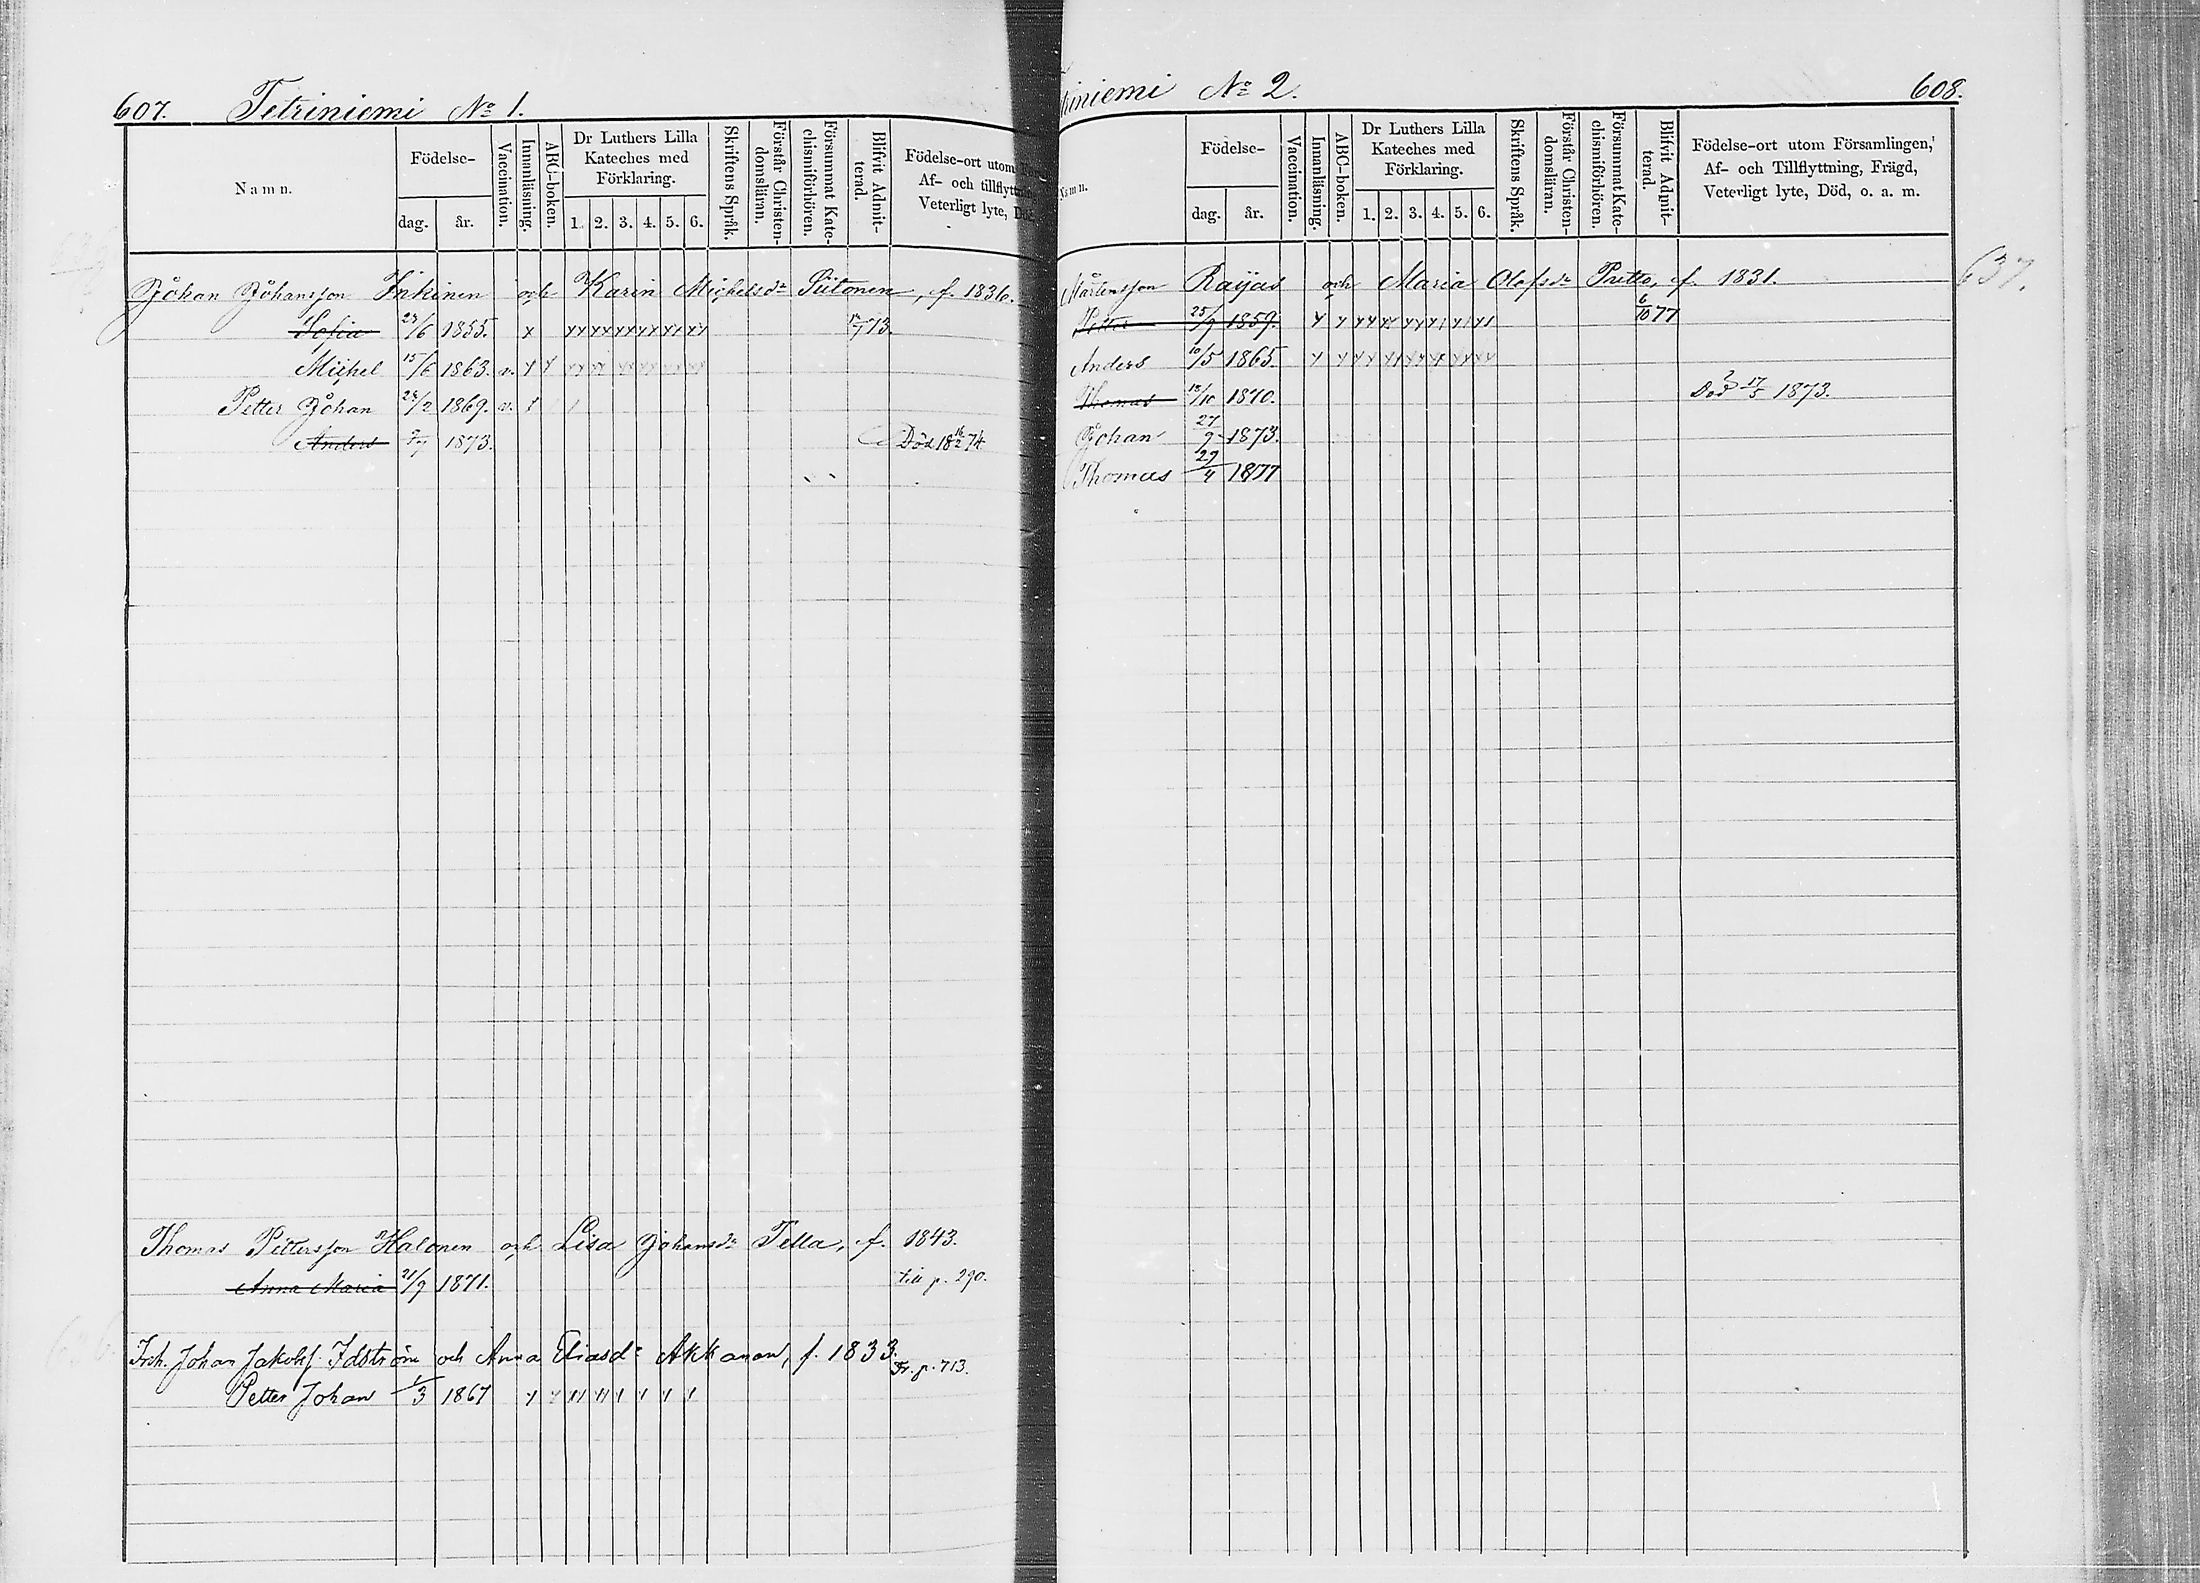 607. Tetriniemi No 1.
Namn.
Födelse-
dag. år.
Vaccination.
Innanläsning.
ABC-boken.
Dr Luthers Lilla
Kateches med
Förklaring.
1. 2. 3. 4. 5. 6.
Skriftens Språk.
Förstår Christen-
domsläran.
Försummat Kate-
chismiförhören.
Blifvit Admit-
terad.
Födelse-ort utom
Af- och tillflytt
Veterligt lyte, Dö
Johan Johansson Inkinen och Karin Michelsdr Siitonen, f. 1836.
Sofia 1855. x
Michel 15/6 1863. v.
Petter Johan 1869. v.
Anders 1873. Död 18 16/2 74
Thomas Pettersson Halonen och Lisa Johansdr Tella, f. 1843.
Anna Maria 21/9 1871. till p. 290.
Inh. Johan Jakobs. Idström och Anna Eliasdr Akkanen, f. 1833. Fr. p. 713.
Petter Johan 1/3 1867
riniemi No 2. 608.
Namn.
Födelse-
dag. år.
Vaccination.
Innanläsning.
ABC-boken.
Dr Luthers Lilla
Kateches med
Förklaring.
1. 2. 3. 4. 5. 6.
Skriftens Språk.
Förstår Christen-
domsläran.
Försummat Kate-
chismiförhören.
Blifvit Admit-
terad.
Födelse-ort utom Församlingen,
Af- och Tillflyttning, Frägd,
Veterligt lyte, Död, o. a. m.
Mårtensson Raijas och Maria Olofsdr Pretto, f. 1831. 637.
Petter 25/9 1859. 6/10 77
Anders 10/5 1865.
Thomas 18/10 1870. Död 17/5 1873.
Johan 27/9 1873.
Thomas 29/4 1877